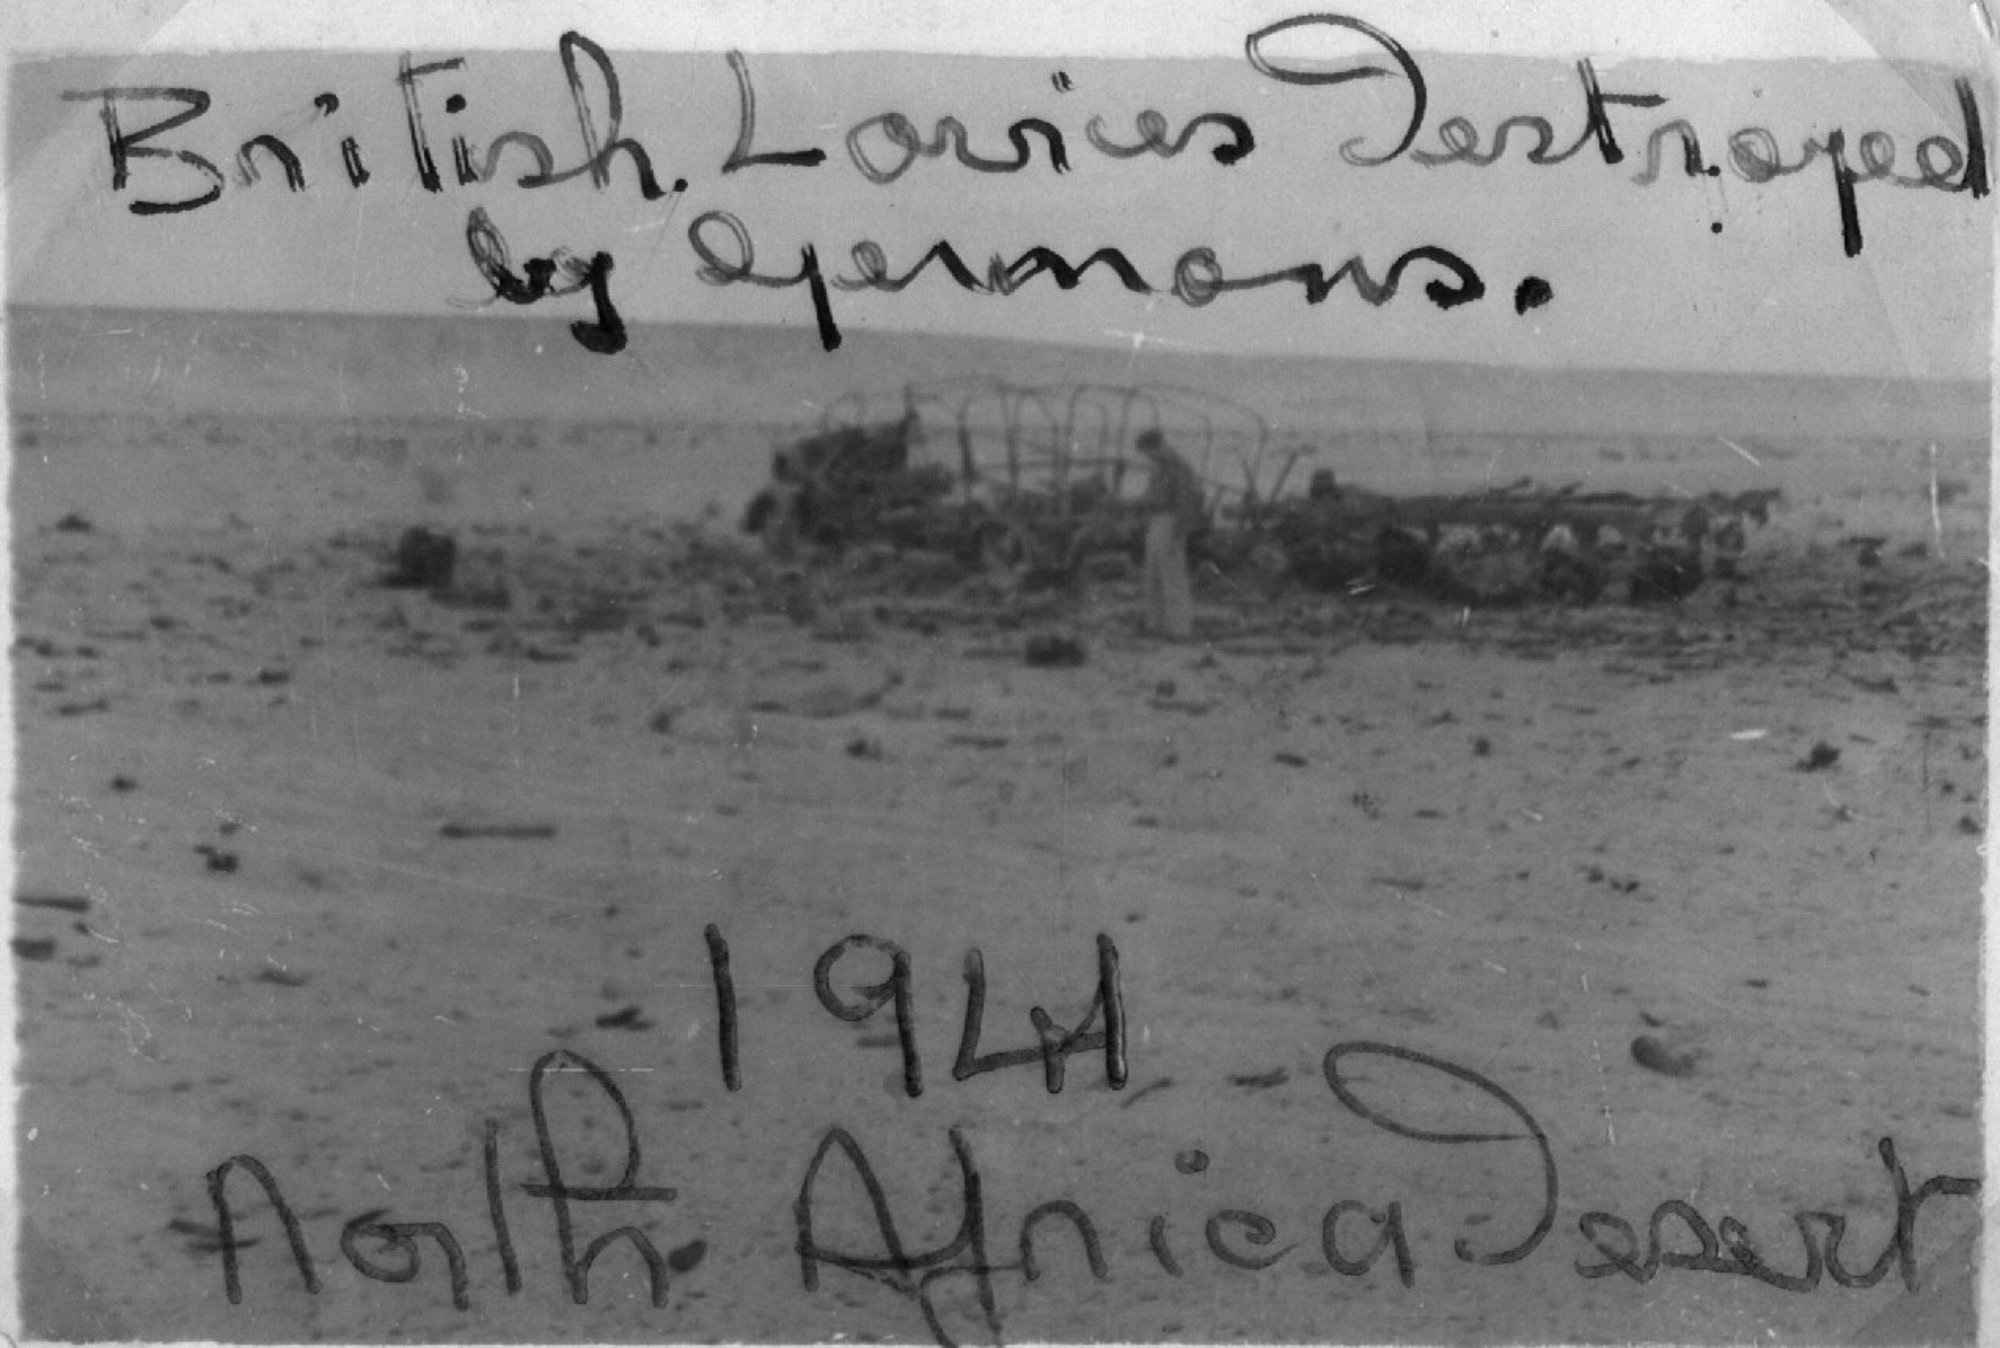 British. Lorries Destroyed
by Germans.
1941
North. Africa Desert